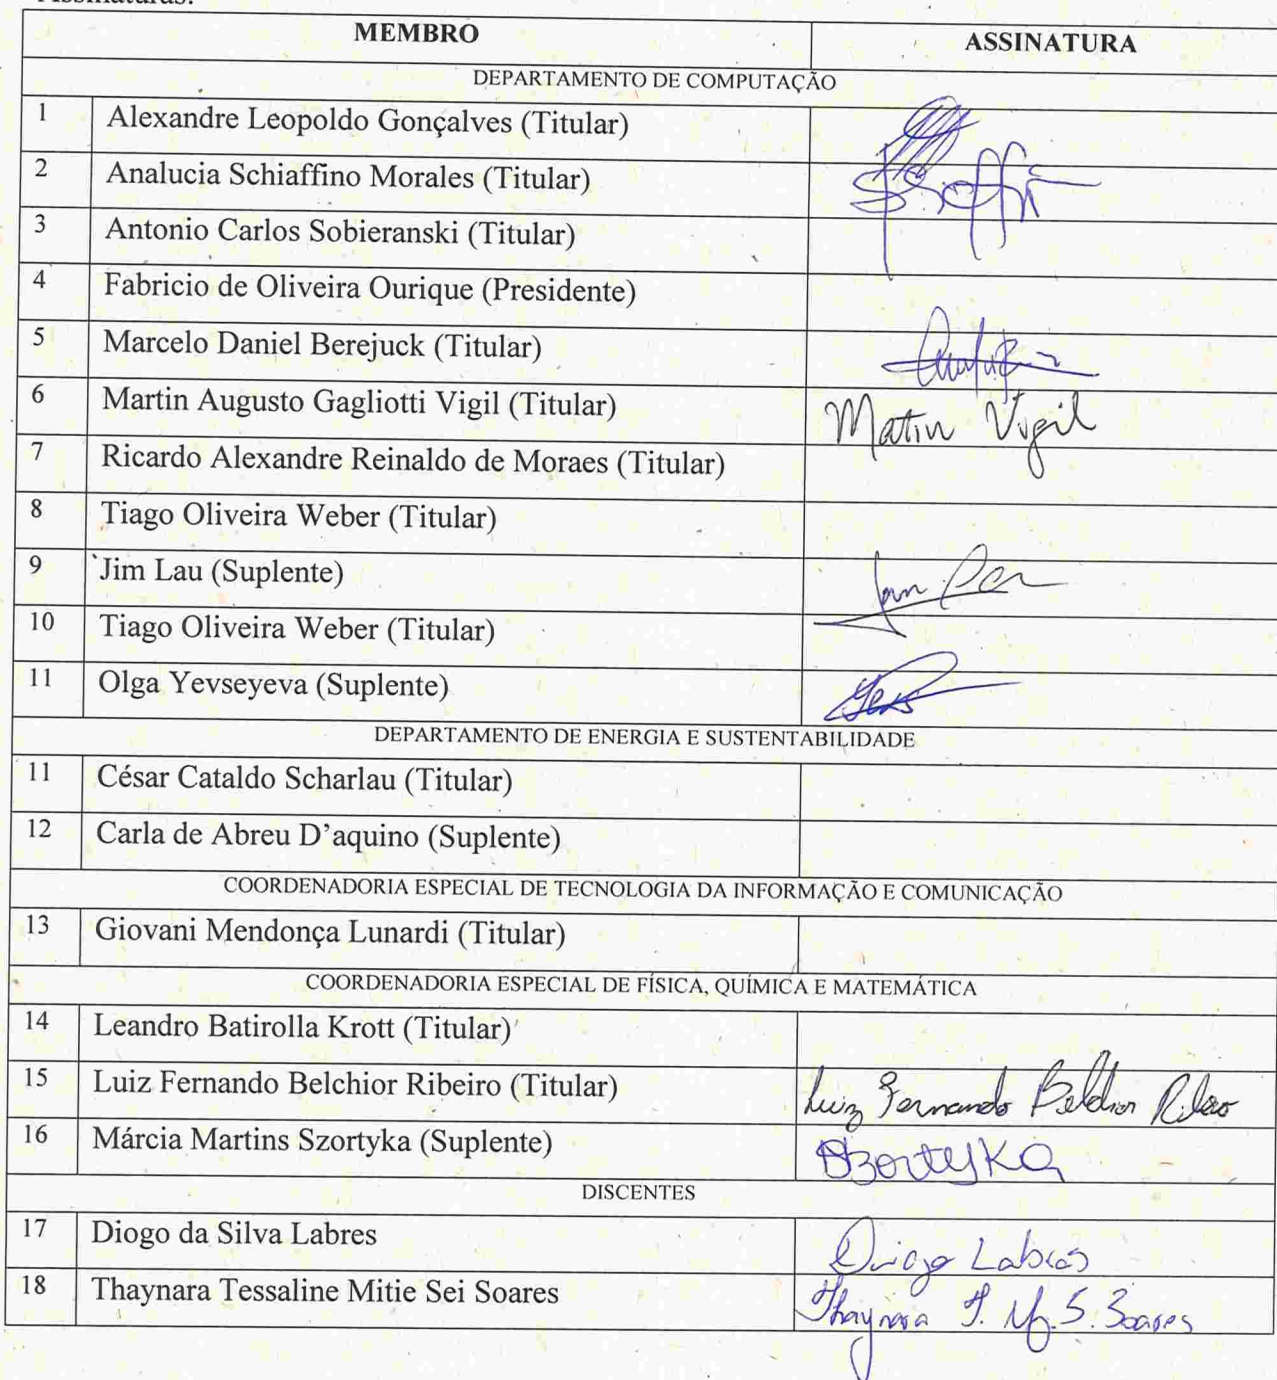 Assinaturas:
MEMBRO ASSINATURA
DEPARTAMENTO DE COMPUTAÇÃO
1 Alexandre Leopoldo Gonçalves (Titular)
2 Analucia Schiaffino Morales (Titular)
3 Antonio Carlos Sobieranski (Titular)
4 Fabricio de Oliveira Ourique (Presidente)
5 Marcelo Daniel Berejuck (Titular)
6 Martin Augusto Gagliotti Vigil (Titular) Matin Vigil
7 Ricardo Alexandre Reinaldo de Moraes (Titular)
8 Tiago Oliveira Weber (Titular)
9 Jim Lau (Suplente)
10 Tiago Oliveira Weber (Titular)
11 Olga Yevseyeva (Suplente)
DEPARTAMENTO DE ENERGIA E SUSTENTABILIDADE
11 César Cataldo Scharlau (Titular)
12 Carla de Abreu D'aquino (Suplente)
COORDENADORIA ESPECIAL DE TECNOLOGIA DA INFORMAÇÃO E COMUNICAÇÃO
13 Giovani Mendonça Lunardi (Titular)
COORDENADORIA ESPECIAL DE FÍSICA, QUÍMICA E MATEMÁTICA
14 Leandro Batirolla Krott (Titular)
15 Luiz Fernando Belchior Ribeiro (Titular) Luiz Fernando Belchior Ribeiro
16 Márcia Martins Szortyka (Suplente) Szortyka
DISCENTES
17 Diogo da Silva Labres Diogo Labres
18 Thaynara Tessaline Mitie Sei Soares Thaynara T. M. S. Soares